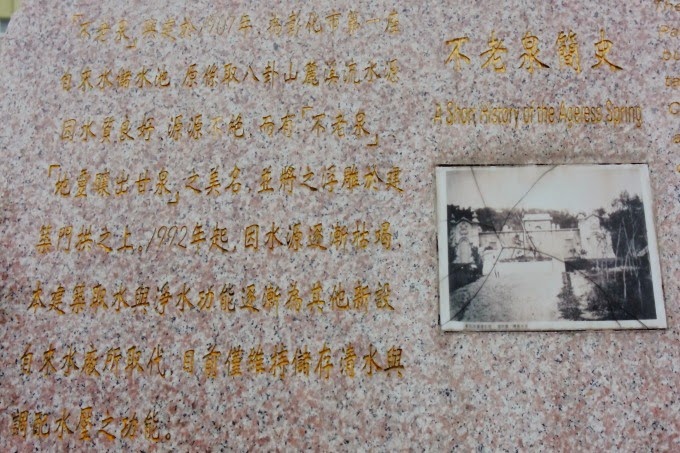 不老泉簡史
A Short History of the Ageless Spring
「不老泉」興建於1907年，為彰化市第一座
自來水儲水池，原係取八卦山麓溪流水源
因水質良好，源源不絕，而有「不老泉」
「地靈釀出甘泉」之美名，並將之浮雕於建
築門拱之上。1992年起，因水源逐漸枯竭，
本建築取水與淨水功能逐漸為其他新設
自來水廠所取代，目前僅維持儲存清水與
調配水壓之功能。